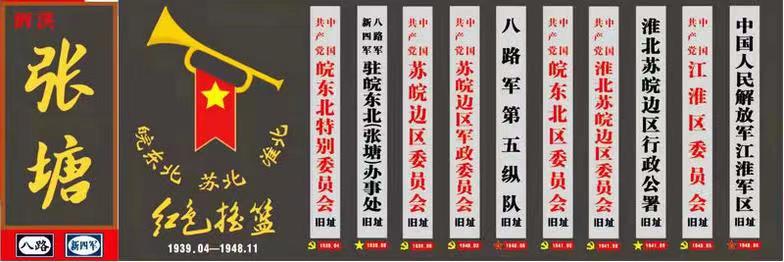 泗洪
张塘
八路
新四军
皖东北 苏北 淮北
红色摇篮
1939.04—1948.11
中国共产党皖东北特别委员会旧址
八路军新四军驻皖东北(张塘)办事处旧址
中国共产党苏皖边区委员会旧址
中国共产党苏皖边区军政委员会旧址
八路军第五纵队旧址
中国共产党皖东北区委员会旧址
中国共产党淮北苏皖边区委员会旧址
淮北苏皖边区行政公署旧址
中国共产党江淮区委员会旧址
中国人民解放军江淮军区旧址
1939.04